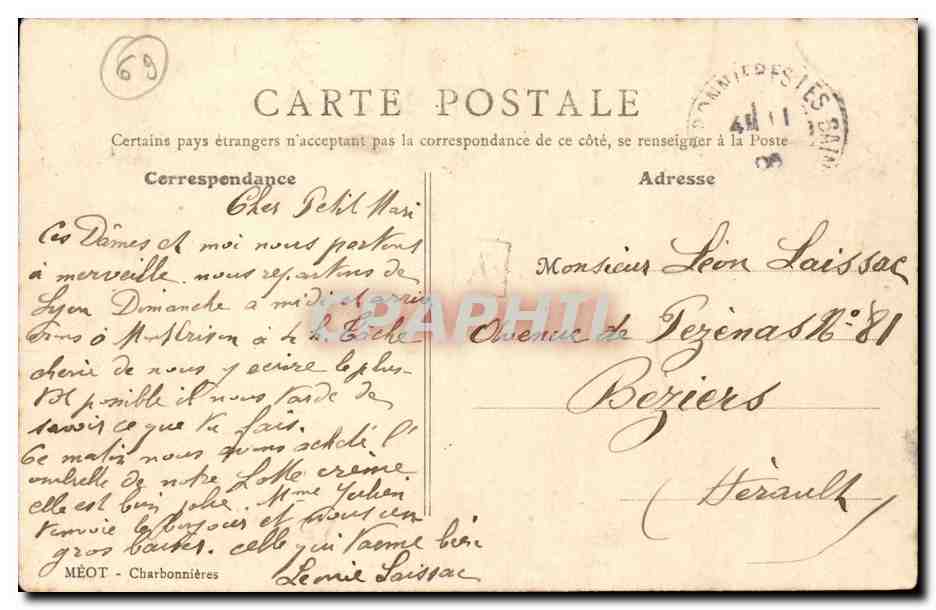 69
CARTE POSTALE
Certains pays étrangers n'acceptant pas la correspondance de ce côté, se renseigner à la Poste
ONNIERES LES BAIN
4 11
Correspondance
Cher Petit Mari
Ces Dâmes et moi nous portons
à merveille nous repartons de
Lyon Dimanche a midi et arri
vons à Montbrison à 4 h. Tâche
cherie de nous y ecrire le plus
tôt possible il nous tarde de
savoir ce que tu fais.
Ce matin nous avons acheté l'
ombrelle de notre Lolotte crème
elle est bien jolie. Mme Julien
t'envoie le bonjour et nous un
gros baiser. celle qui t'aime bien
Leonie Laissac
MÉOT - Charbonnières
Adresse
Monsieur Léon Laissac
Avenue de Pezènas N° 81
Beziers
(Hérault)
CPAPHIL